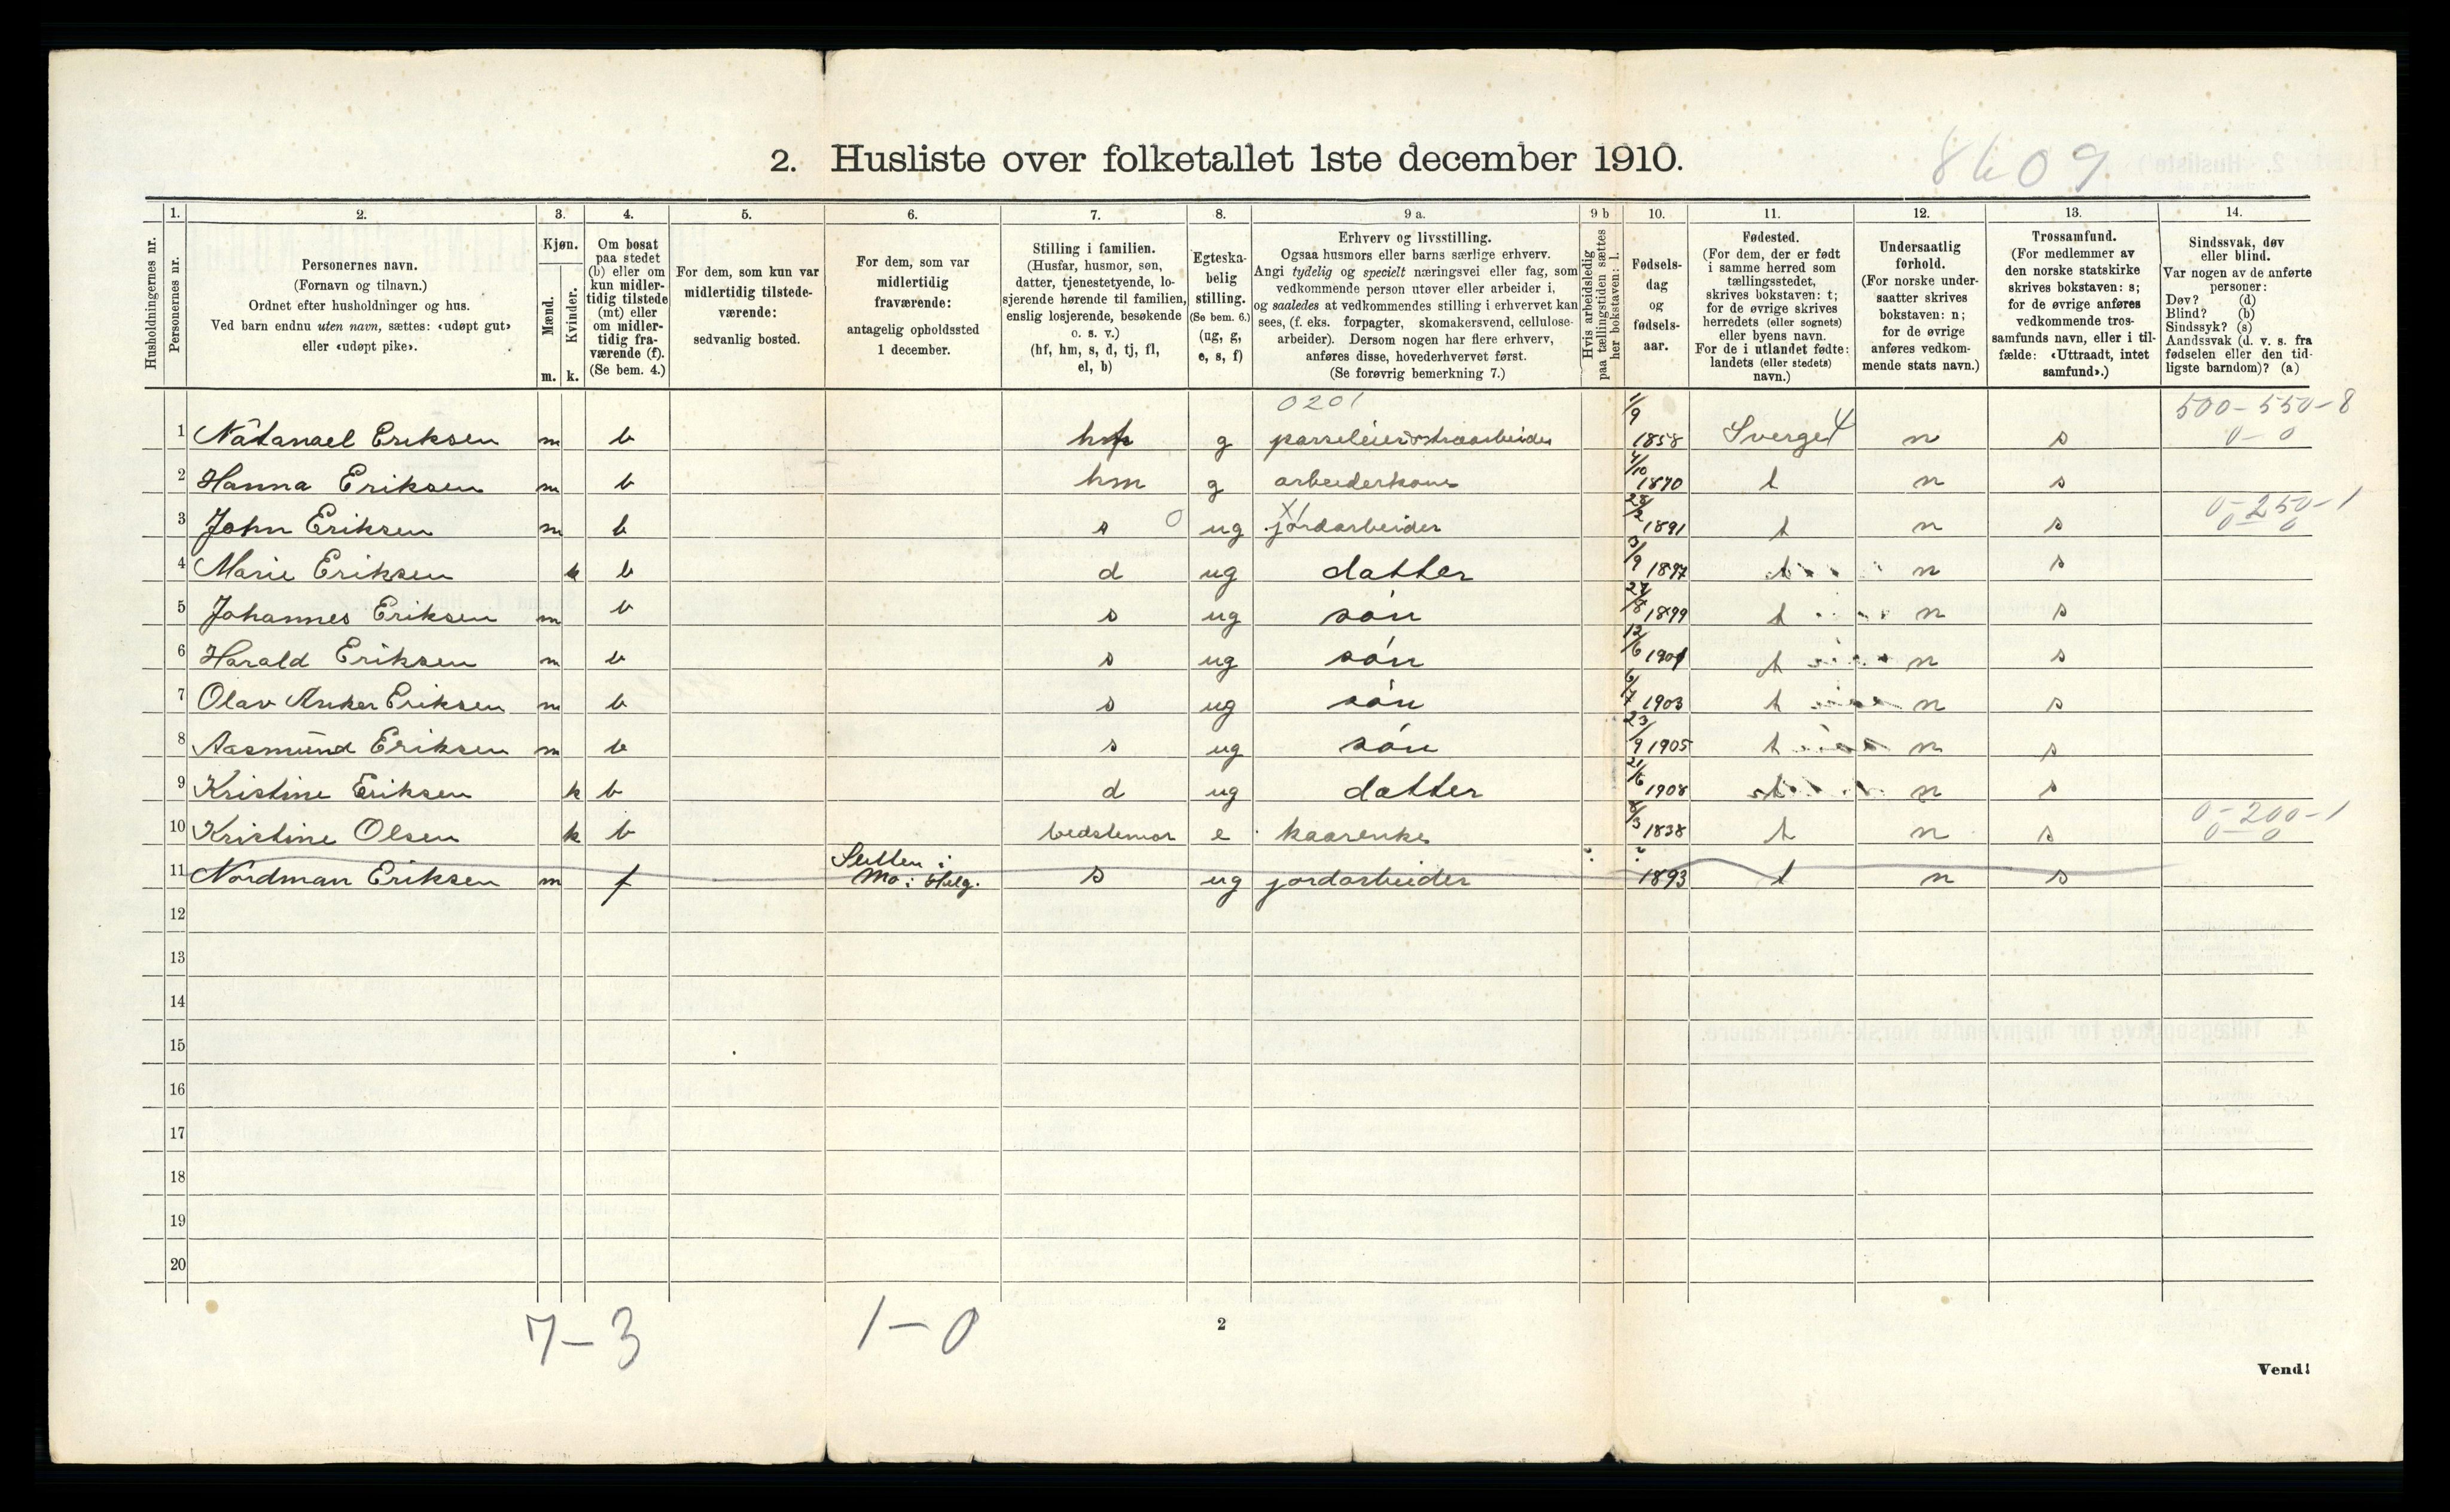 2. Husliste over folketallet 1ste december 1910.
8609
Husholdningernes nr.
1. Personernes nr.
2. Personernes navn.
(Fornavn og tilnavn.)
Ordnet efter husholdninger og hus.
Ved barn endnu uten navn, sættes: «udøpt gut»
eller «udøpt pike».
3. Kjøn.
Mænd. Kvinder.
m. k.
4. Om bosat
paa stedet
(b) eller om
kun midler-
tidig tilstede
(mt) eller
om midler-
tidig fra-
værende (f).
(Se bem. 4.)
5. For dem, som kun var
midlertidig tilstede-
værende:
sedvanlig bosted.
6. For dem, som var
midlertidig
fraværende:
antagelig opholdssted
1 december.
7. Stilling i familien.
(Husfar, husmor, søn,
datter, tjenestetyende, lo-
sjerende hørende til familien,
enslig losjerende, besøkende
o. s. v.)
(hf, hm, s, d, tj, fl,
el, b)
8. Egteska-
belig
stilling.
(Se bem. 6.)
(ug, g,
e, s, f)
9 a. Erhverv og livsstilling.
Ogsaa husmors eller barns særlige erhverv.
Angi tydelig og specielt næringsvei eller fag, som
vedkommende person utøver eller arbeider i,
og saaledes at vedkommendes stilling i erhvervet kan
sees, (f. eks. forpagter, skomakersvend, cellulose-
arbeider). Dersom nogen har flere erhverv,
anføres disse, hovederhvervet først.
(Se forøvrig bemerkning 7.)
9 b Hvis arbeidsledig
paa tællingstiden sættes
her bokstaven: l.
10. Fødsels-
dag
og
fødsels-
aar.
11. Fødested.
(For dem, der er født
i samme herred som
tællingsstedet,
skrives bokstaven: t;
for de øvrige skrives
herredets (eller sognets)
eller byens navn.
For de i utlandet fødte:
landets (eller stedets)
navn.)
12. Undersaatlig
forhold.
(For norske under-
saatter skrives
bokstaven: n;
for de øvrige
anføres vedkom-
mende stats navn.)
13. Trossamfund.
(For medlemmer av
den norske statskirke
skrives bokstaven: s;
for de øvrige anføres
vedkommende tros-
samfunds navn, eller i til-
fælde: «Uttraadt, intet
samfund».)
14. Sindssvak, døv
eller blind.
Var nogen av de anførte
personer:
Døv? (d)
Blind? (b)
Sindssyk? (s)
Aandssvak (d. v. s. fra
fødselen eller den tid-
ligste barndom)? (a)
0201 500-550-8
1 Natanael Eriksen m b hf g parseleier træarbeider 1/9 1858 Sverge 4 n s 0-0
2 Hanna Eriksen m b hm g arbeiderkone 4/10 1870 t n s
3 John Eriksen m b s 0 ug jordarbeider 28/2 1891 t n s 0-250-1 0-0
4 Marie Eriksen k b d ug datter 3/9 1897 t n s
5 Johannes Eriksen m b s ug søn 27/8 1899 t n s
6 Harald Eriksen m b s ug søn 12/6 1901 t n s
7 Olav Anker Eriksen m b s ug søn 6/7 1903 t n s
8 Aasmund Eriksen m b s ug søn 23/9 1905 t n s
9 Kristine Eriksen k b d ug datter 21/6 1908 t n s
10 Kristine Olsen k b bedstemor e kaarenke 8/3 1838 t n s 0-200-1 0-0
11 Nordman Eriksen m f Mo i Helg. s ug jordarbeider ? 1893 t n s
12
13
14
15
16
17
18
19
20
7-3 1-0
2
Vend!